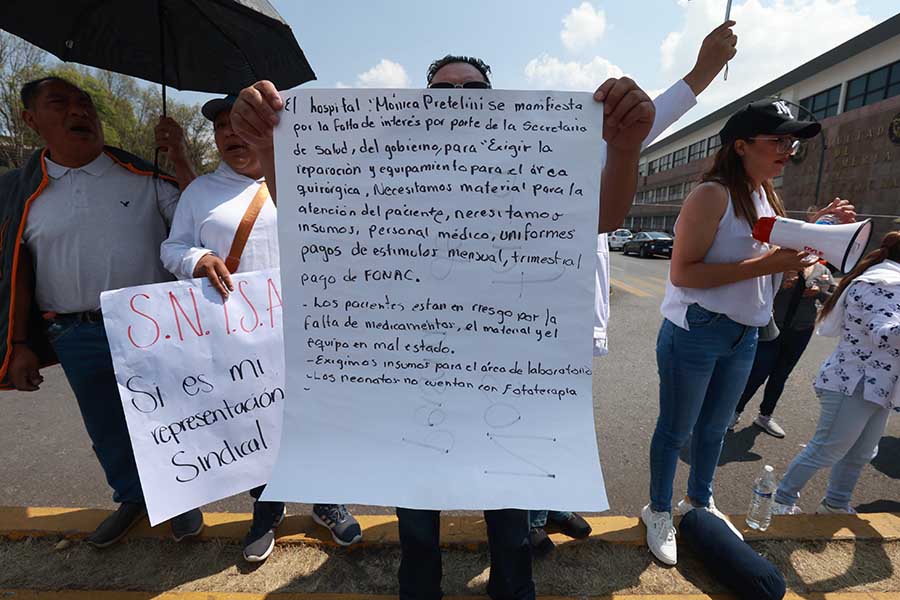 El hospital : Mónica Pretelini se manifiesta
por la falta de interés por parte de la Secretaria
de salud, del gobierno, para "Exigir la
reparación y equipamiento para el área
quirúrgica, Necesitamos material para la
atención del paciente, necesitamos
insumos, personal médico, uniformes
pagos de estímulos mensual, trimestral
pago de FONAC.
- Los pacientes estan en riesgo por la
falta de medicamentos, el material y el
equipo en mal estado.
- Exigimos insumos para el área de laboratorio
- Los neonatos no cuentan con Fototerapia
S.N.T.S.A
Si es mi
representación
Sindical
NY